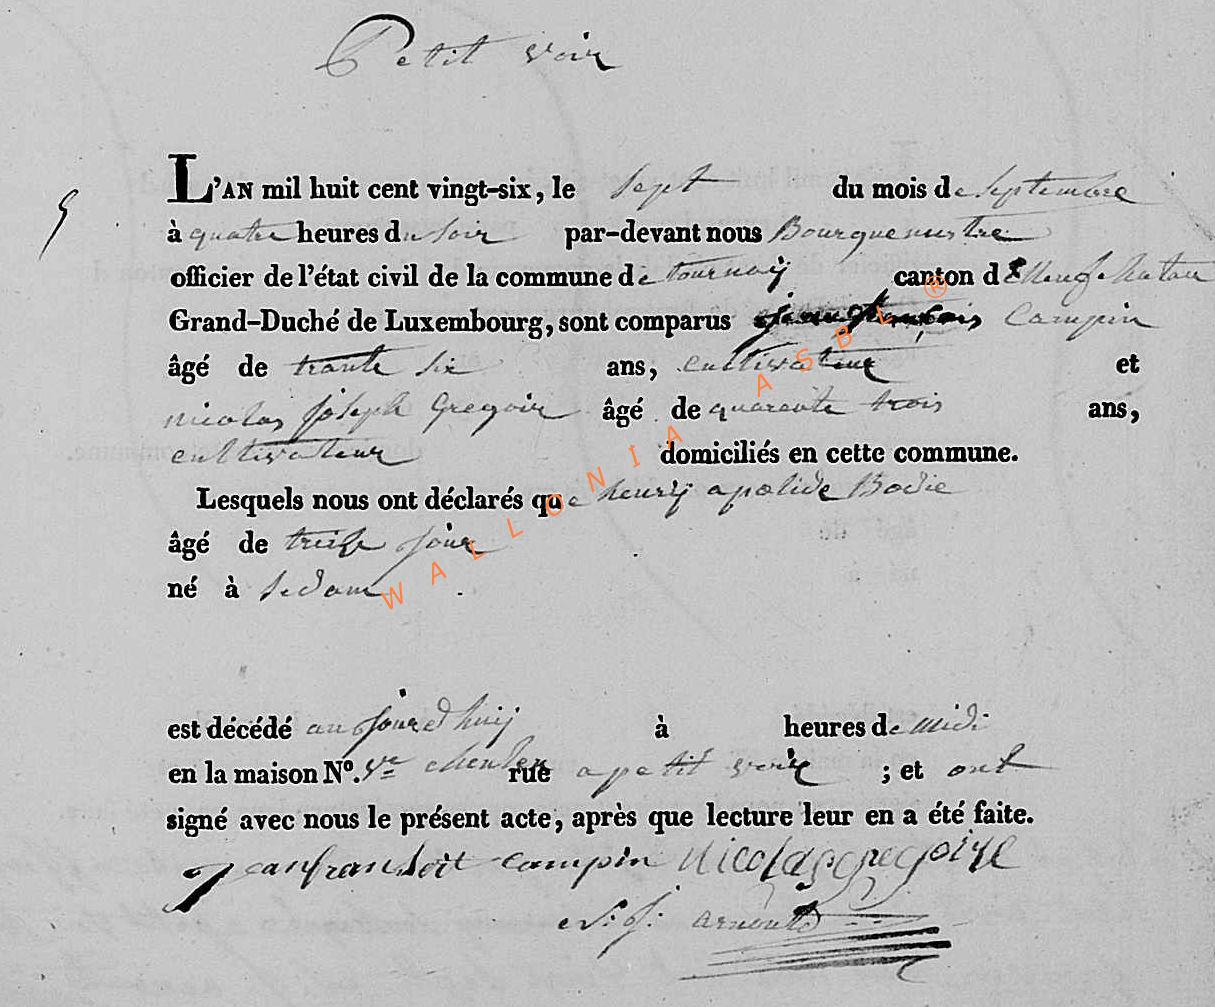 Petit voir
5
L'AN mil huit cent vingt-six, le sept du mois de septembre
à quatre heures du soir par-devant nous Bourguemestre
officier de l'état civil de la commune de tournay canton de Neufchateau
Grand-Duché de Luxembourg, sont comparus jean francois Campin
âgé de trante six ans, cultivateur et
nicolas joseph Gregoir âgé de quarente trois ans,
cultivateur domiciliés en cette commune.
Lesquels nous ont déclarés que henry apolide Bodie
âgé de treise jour
né à sedan
est décédé au jourdhuij à heures de midi
en la maison N°. Ve rue a petit voir ; et ont
signé avec nous le présent acte, après que lecture leur en a été faite.
jeanfransoit campin Nicolas gregoire
J: arnould
WALLONIA ASBL ®